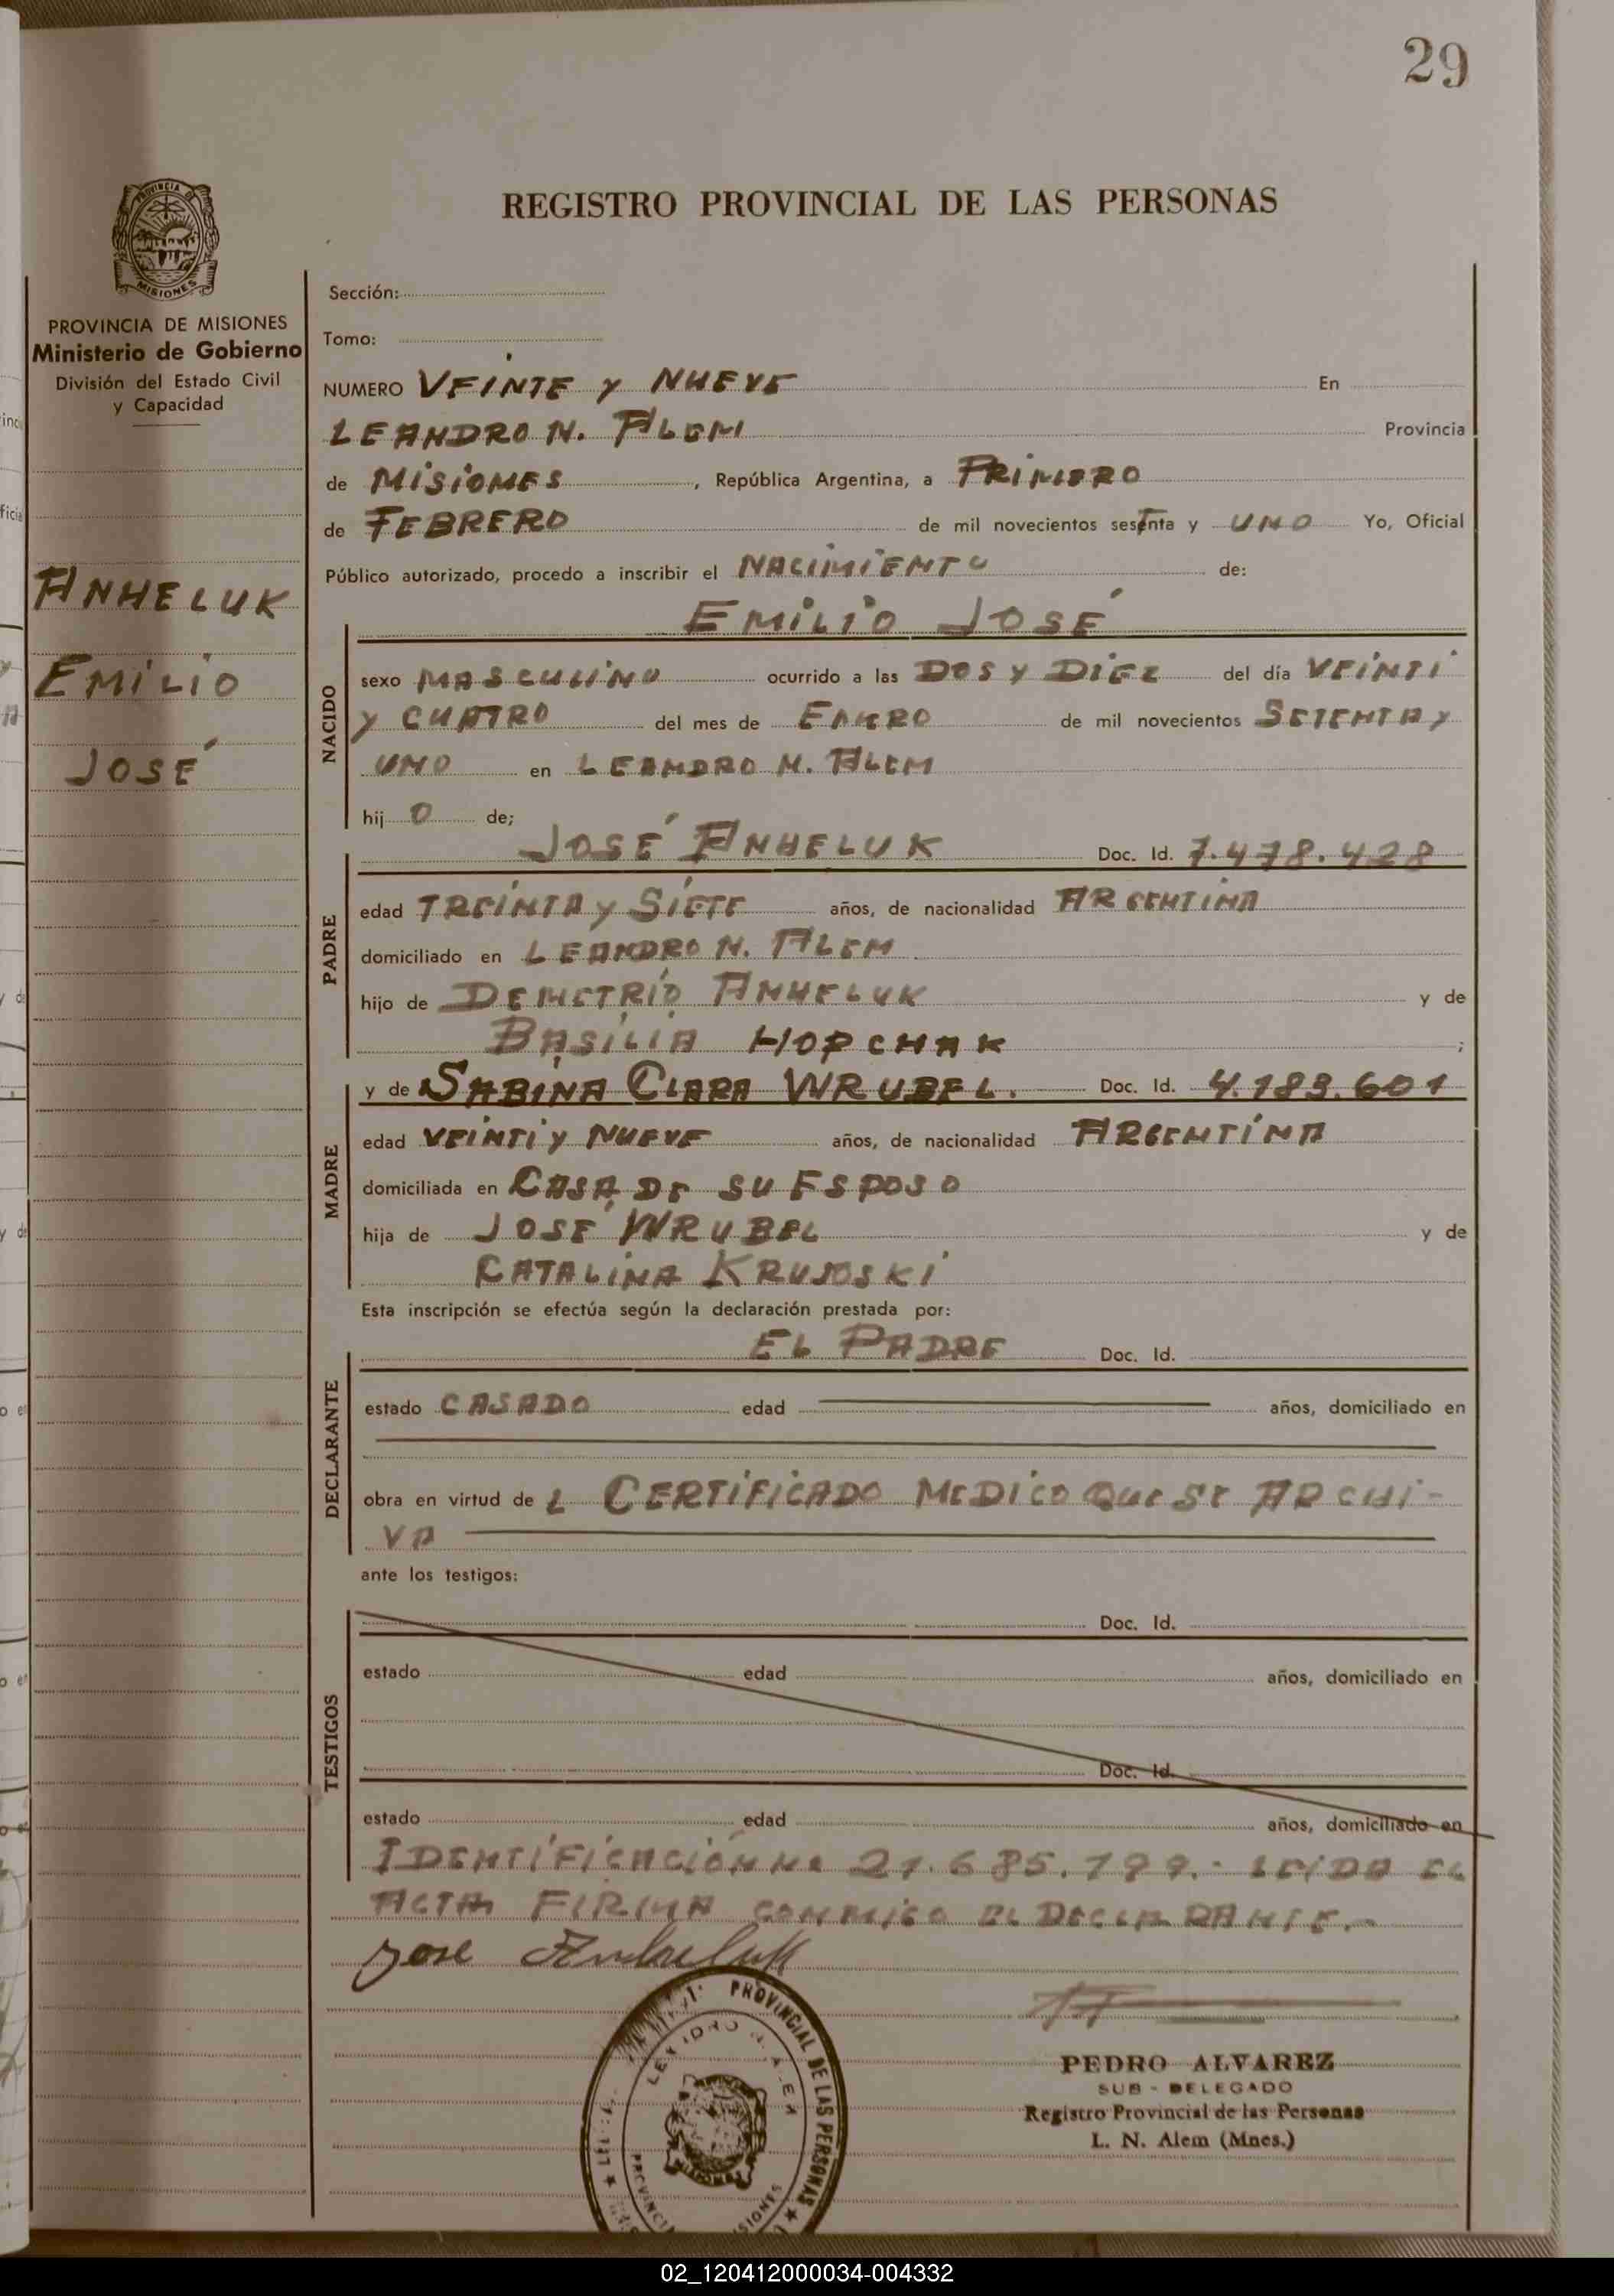 29
REGISTRO PROVINCIAL DE LAS PERSONAS
PROVINCIA
MISIONES
PROVINCIA DE MISIONES
Ministerio de Gobierno
División del Estado Civil
y Capacidad
ANHELUK
EMILIO
JOSÉ
Sección:
Tomo:
NUMERO VEINTE Y NUEVE En
LEANDRO N. ALEM Provincia
de MISIONES, República Argentina, a PRIMERO
de FEBRERO de mil novecientos sesenta y UNO Yo, Oficial
Público autorizado, procedo a inscribir el NACIMIENTO de:
EMILIO JOSÉ
NACIDO
sexo MASCULINO ocurrido a las DOS Y DIEZ del día VEINTI
Y CUATRO del mes de ENERO de mil novecientos SETENTA Y
UNO en LEANDRO N. ALEM
hij O de;
JOSÉ ANHELUK Doc. Id. 7.478.428
PADRE
edad TREINTA Y SIETE años, de nacionalidad ARGENTINA
domiciliado en LEANDRO N. ALEM
hijo de DEMETRIO ANHELUK y de
BASILIA HOPCHAK ;
y de SABINA CLARA WRUBEL. Doc. Id. 4.189.601
MADRE
edad VEINTI Y NUEVE años, de nacionalidad ARGENTINA
domiciliada en CASA DE SU ESPOSO
hija de JOSÉ WRUBEL y de
CATALINA KRUJOSKI
Esta inscripción se efectúa según la declaración prestada por:
EL PADRE Doc. Id.
DECLARANTE
estado CASADO edad años, domiciliado en
obra en virtud de L CERTIFICADO MEDICO QUE SE ARCHI-
VA
ante los testigos:
Doc. Id.
TESTIGOS
estado edad años, domiciliado en
Doc. Id.
estado edad años, domiciliado en
IDENTIFICACIÓN No 21.685.799.- LEIDA EL
ACTA FIRMA CONMIGO EL DECLARANTE.-
Jose Anheluk
PROVINCIAL DE LAS PERSONAS
PEDRO ALVAREZ
SUB - DELEGADO
Registro Provincial de las Personas
L. N. Alem (Mnes.)
02_120412000034-004332